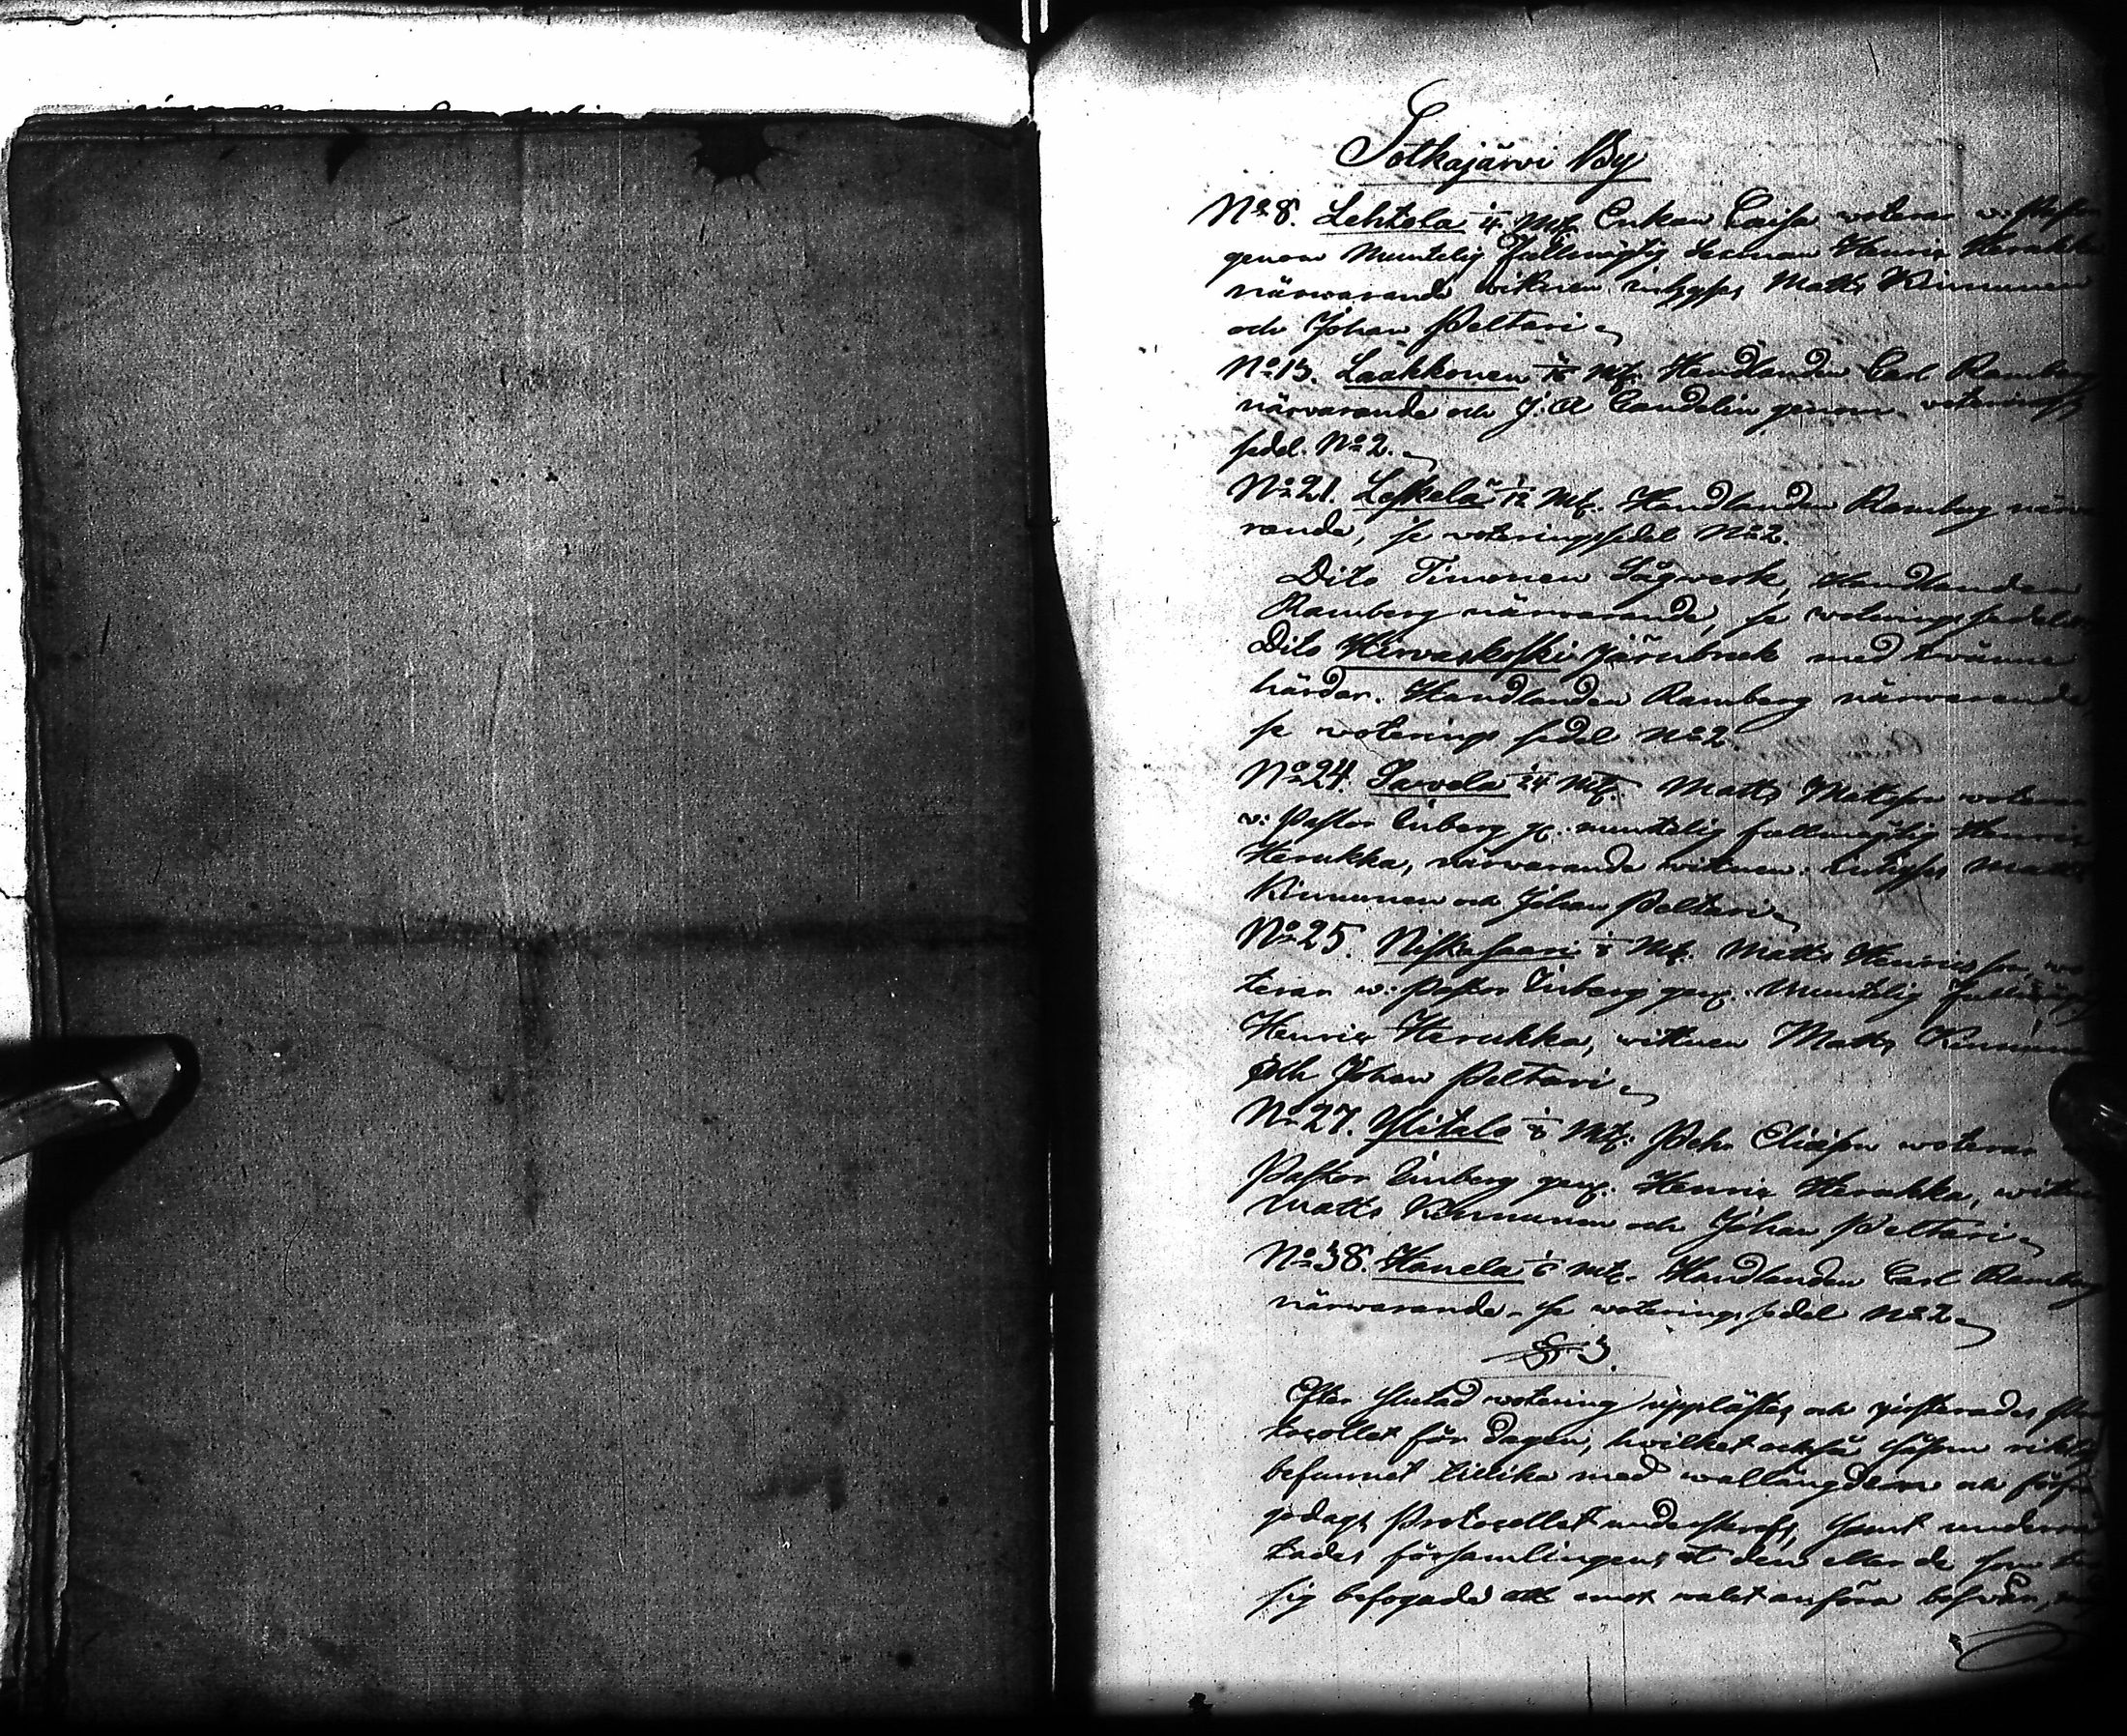 Sotkajärvi By
No 8. Lehtola 1/4 Mtl. Enkan Caisa woterar w: Pastor
genom Muntelig Fullmägtig Lexman Henric Herukka
närwarande witnen inhyses Matts Kinnunen
och Johan Peltari
No 13. Laakkonen Mtl. Handlanden Carl Ramberg
närwarande och J. A Candelin genom woterings
sedel No 2.
No 21. Leskelä 1/12 Mtl. Handlanden Ramberg närwa
rande, se woteringssedel No 2.
Dito Timonen Sågwerk, Handlanden
Ramberg närwarande, se woterings sedelen
Dito Hirvaskoski Järnbruk med twänne
härdar. Handlanden Ramberg närwarande
se woterings sedel No 2
No 24. Savela 1/24 Mtl. Matts Mattsson woterar
w: Pastor Enberg g. muntelig fullmägtig Henric
Herukka, närwarande witnen inhyses Matts
Kinnunen och Johan Peltari
No 25. Niskasaari 1/8 Mtl. Matts Henricsson wo
terar w: Pastor Enberg gen. Muntelig Fullmägtig
Henric Herukka, witnen Matts Kinnunen
och Johan Peltari
No 27. Ylitalo 1/8 Mtl. Pehr Eliasson woterar
Pastor Enberg gen. Henric Herukka, witnen
Matts Kinnunen och Johan Peltari
No 38. Hanela 1/6 Mtl. Handlanden Carl Ramberg
närwarande se woterings sedel No 2
§ 3.
Efter slutad wotering upplästes och justerades Pro
tocollet för dagen, hwilket också såsom riktigt
befunnet tillika med wallängderne och förhe
godags Protocollet underskrefs, samt underrä
tades församlingen, at den eller de som tro
sig befogade att emot walet anföra beswär,